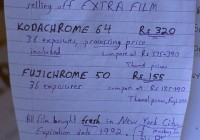 selling off EXTRA FILM
KODACHROME 64 Rs 320
36 exposures, processing price
included compare at Rs 375-390
Thamel prices
FUJICHROME 50 Rs 155
36 exposures compare at Rs 175-190
Thamel prices,
All film bought fresh in New York City
Expiration date 1992.